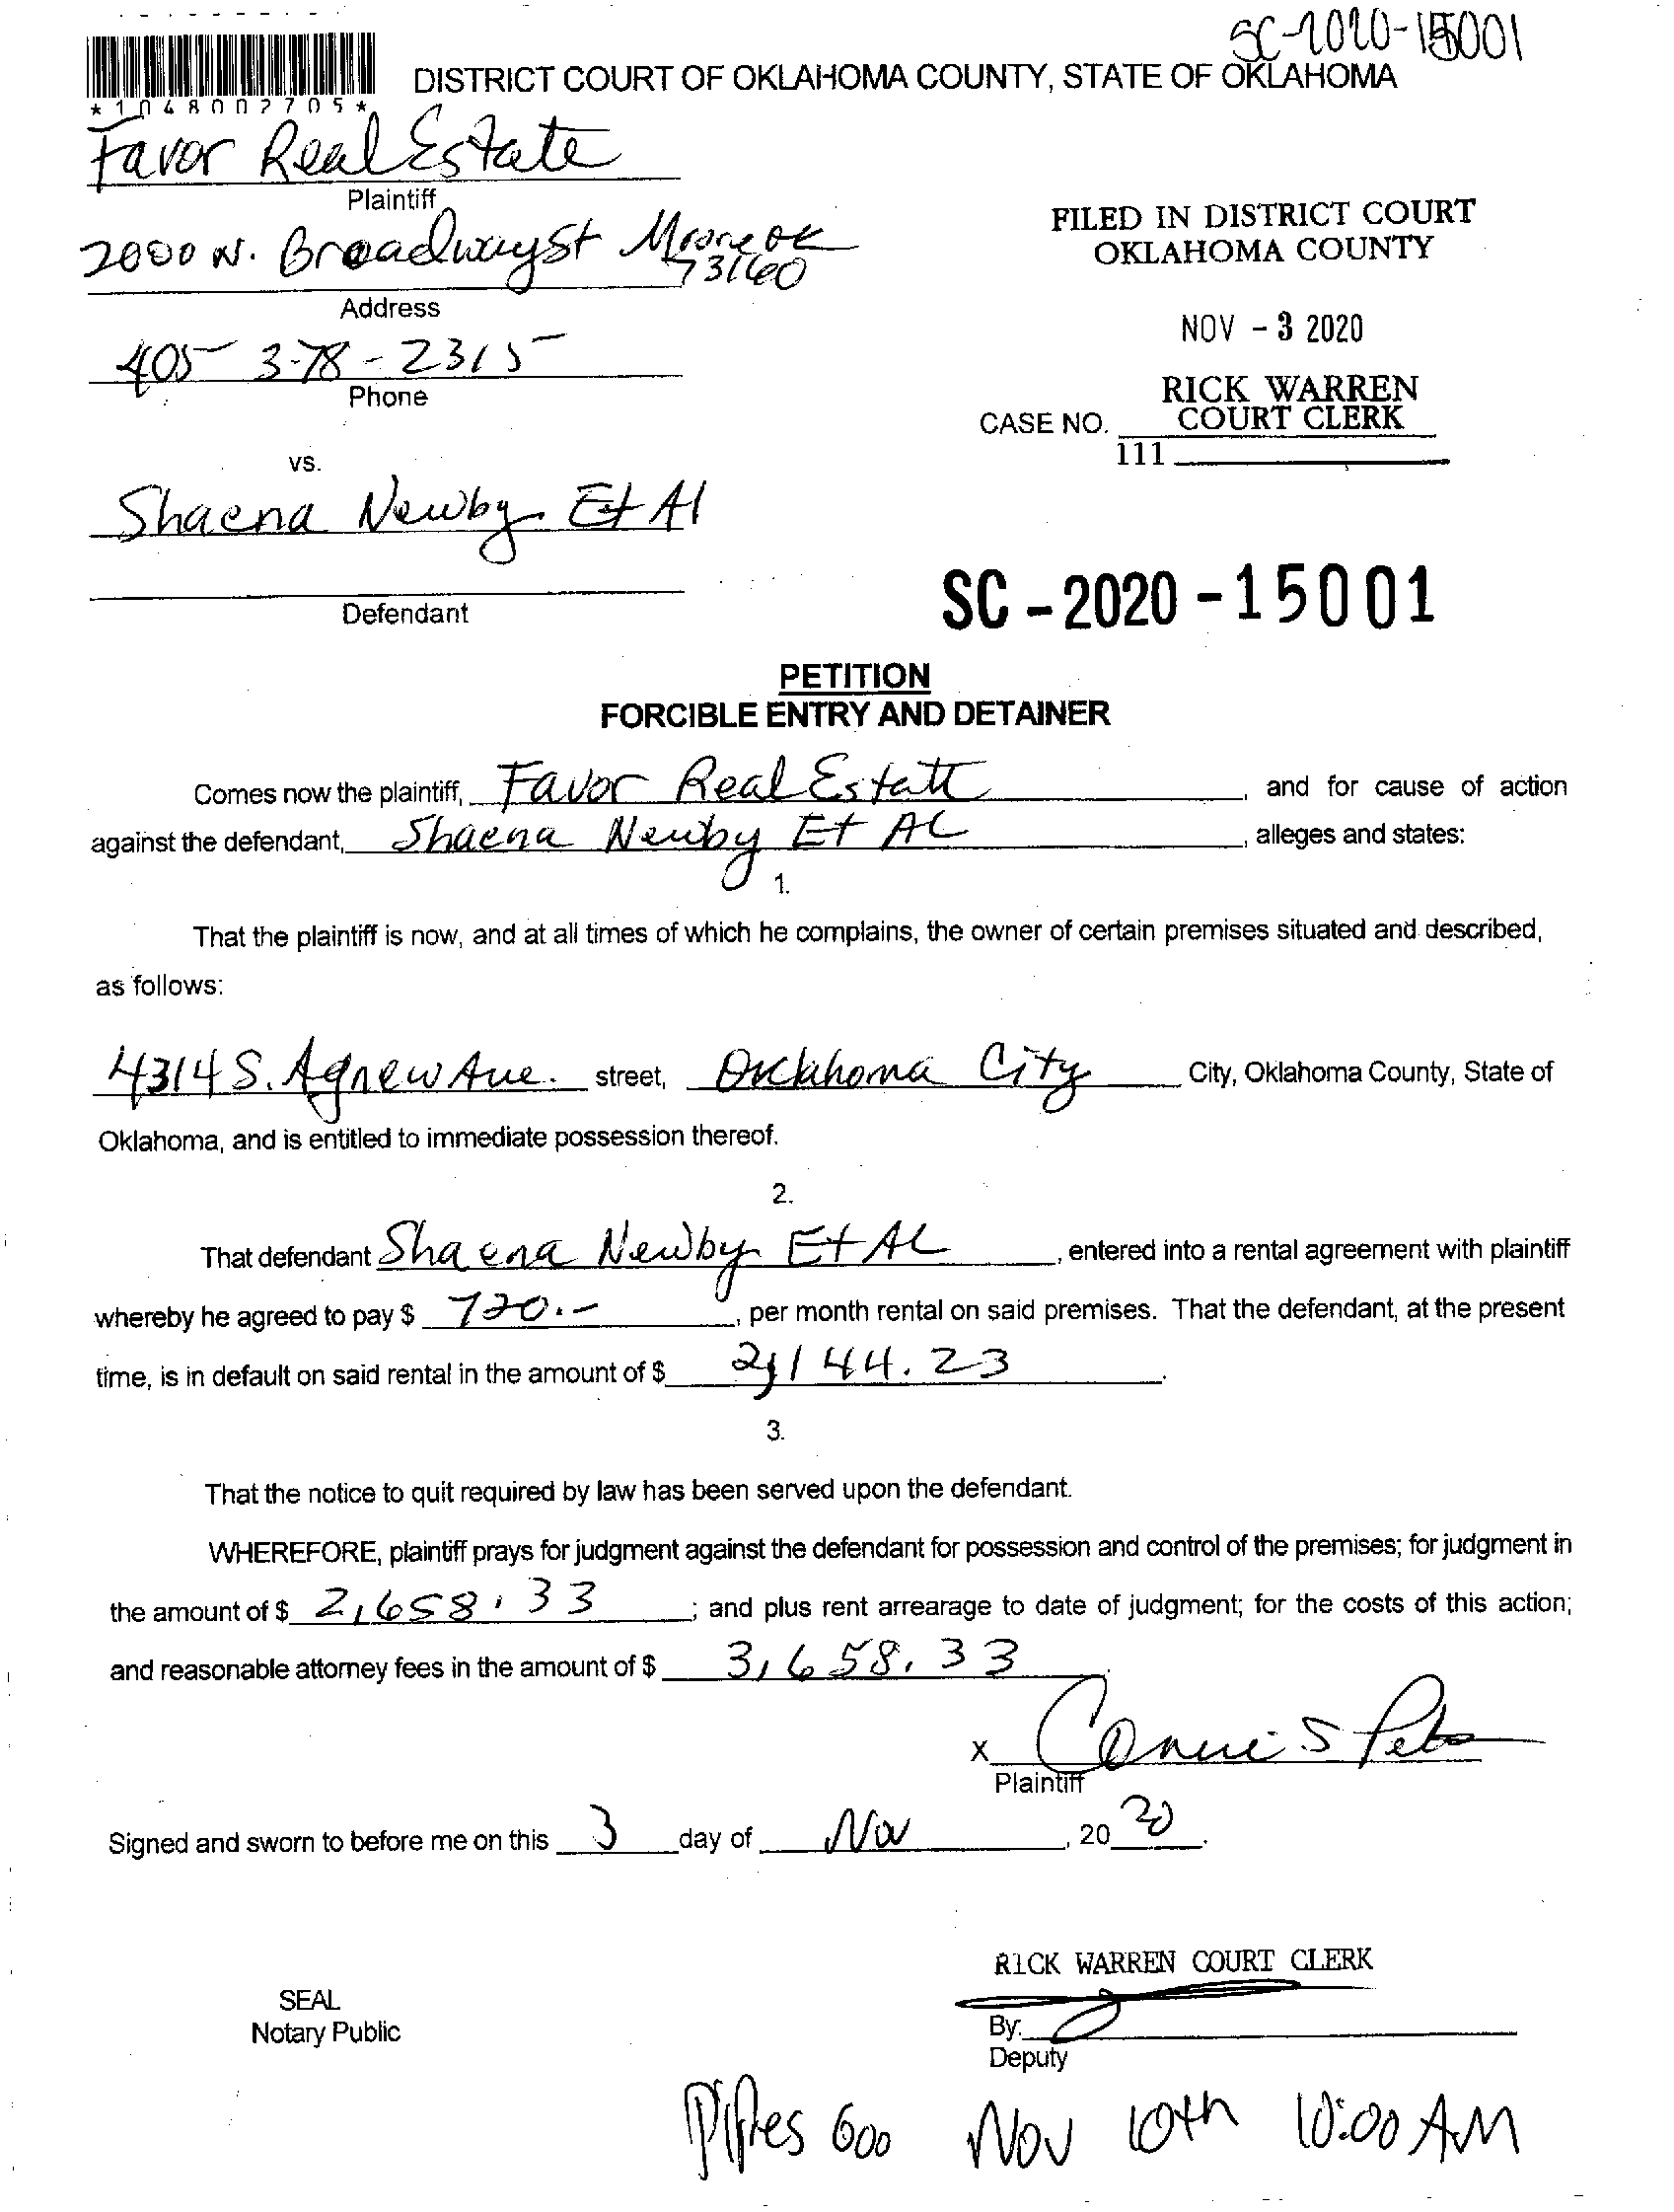 SC-2020-15001
DISTRICT COURT OF OKLAHOMA COUNTY, STATE OF OKLAHOMA
*1048002705*
Favor Real Estate
Plaintiff
2000 N. Broadway St Moore OK
73160
Address
405 378-2315
Phone
FILED IN DISTRICT COURT
OKLAHOMA COUNTY
NOV - 3 2020
RICK WARREN
COURT CLERK
CASE NO.
111
vs.
Shaena Newby Et Al
Defendant
SC - 2020 - 15001
PETITION
FORCIBLE ENTRY AND DETAINER
Comes now the plaintiff, Favor Real Estate, and for cause of action
against the defendant, Shaena Newby Et AL, alleges and states:
1.
That the plaintiff is now, and at all times of which he complains, the owner of certain premises situated and described,
as follows:
4314 S. Agnew Ave. street, Oklahoma City City, Oklahoma County, State of
Oklahoma, and is entitled to immediate possession thereof.
2.
That defendant Shaena Newby Et AL, entered into a rental agreement with plaintiff
whereby he agreed to pay $ 720.-, per month rental on said premises. That the defendant, at the present
time, is in default on said rental in the amount of $ 2,144.23.
3.
That the notice to quit required by law has been served upon the defendant.
WHEREFORE, plaintiff prays for judgment against the defendant for possession and control of the premises; for judgment in
the amount of $ 2,658.33; and plus rent arrearage to date of judgment; for the costs of this action;
and reasonable attorney fees in the amount of $ 3,658.33.
x Connie S
Plaintiff
Signed and sworn to before me on this 3 day of Nov, 20 20.
RICK WARREN COURT CLERK
SEAL
Notary Public
By:
Deputy
600 Nov 10th 10:00 AM